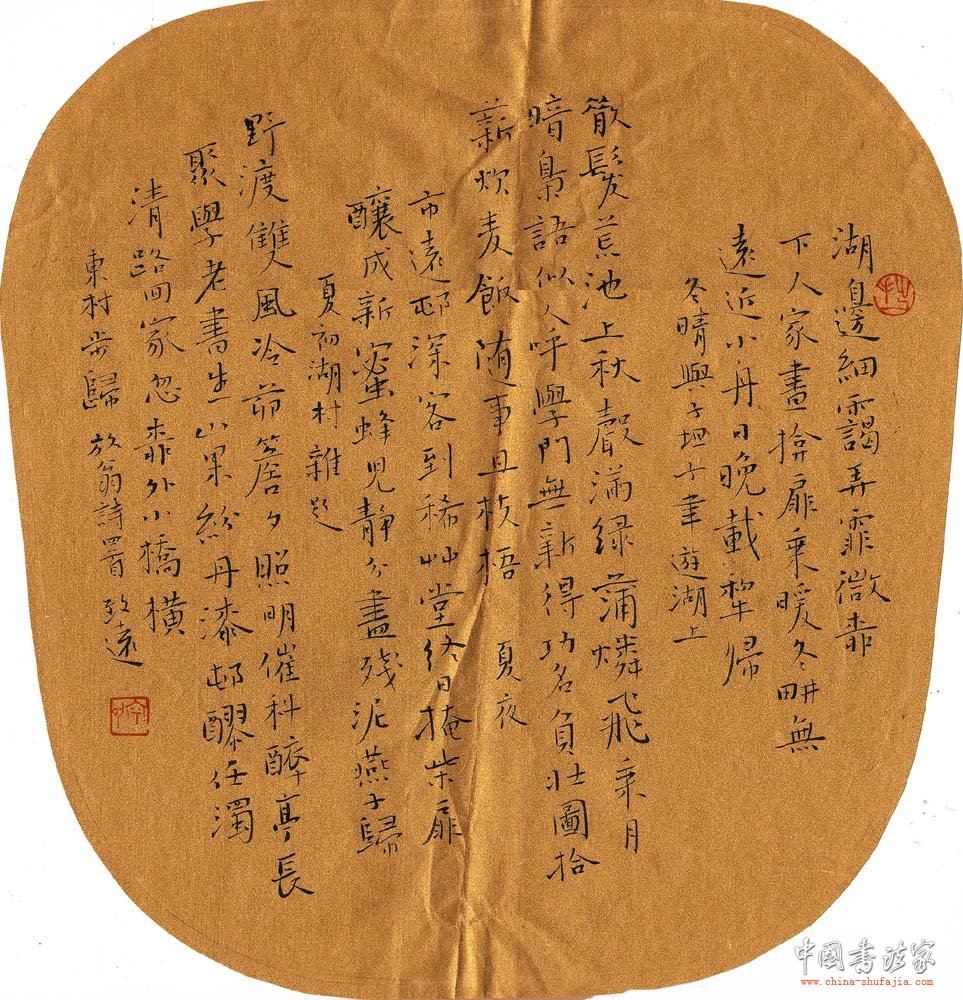 湖邊細靄弄霏微赤
下人家晝揜扉乘暖冬畊無
遠近小舟日晚載犂歸
冬晴與子坦子聿遊湖上
散髮荒池上秋聲滿綠蒲燐飛乘月
暗梟語似人呼學門無新得功名負壯圖拾
薪炊麦飯随事且枝梧 夏夜
市遠邨深客到稀艸堂终日掩柴扉
釀成新蜜蜂児静分盡残泥燕子歸
夏初湖村雜題
野渡雙風冷茆簷夕照明催科醉亭長
聚學老書生山果紛丹漆邨醪任濁
清路回家忽近外小橋横
東村步歸 放翁詩四首 致遠
中国书法家
www.china-shufajia.com